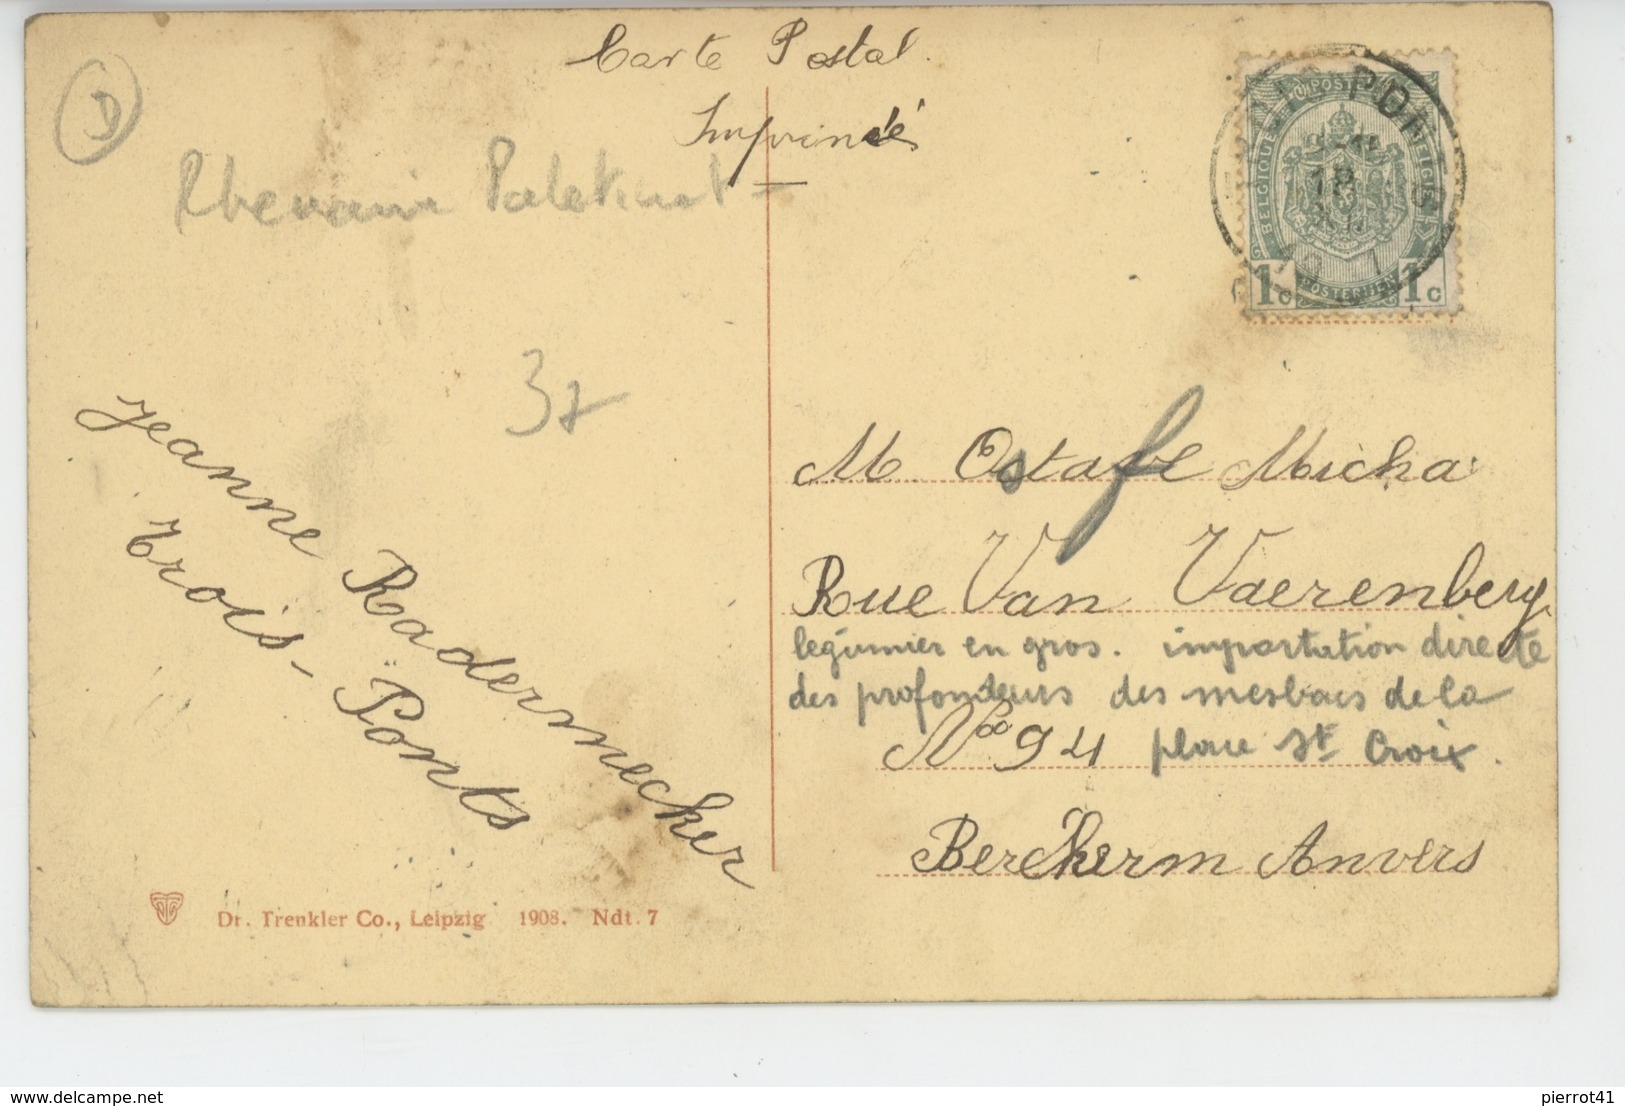 Carte Postal.
Imprimé
D
Rhenanie Paletinat
37
BELGIQUE POSTES BELGIË
1c POSTERIJEN 1c
TROIS-PONTS
18
Jeanne Radermecker
Trois-Ponts
M. Ostafe Micha
Rue Van Vaerenberg
legumier en gros. importation directe
des profondeurs des mesbacs de la
No 94 place St Croix.
Berckerm Anvers
Dr. Trenkler Co., Leipzig 1908. Ndt. 7
delcampe.net
pierrot41